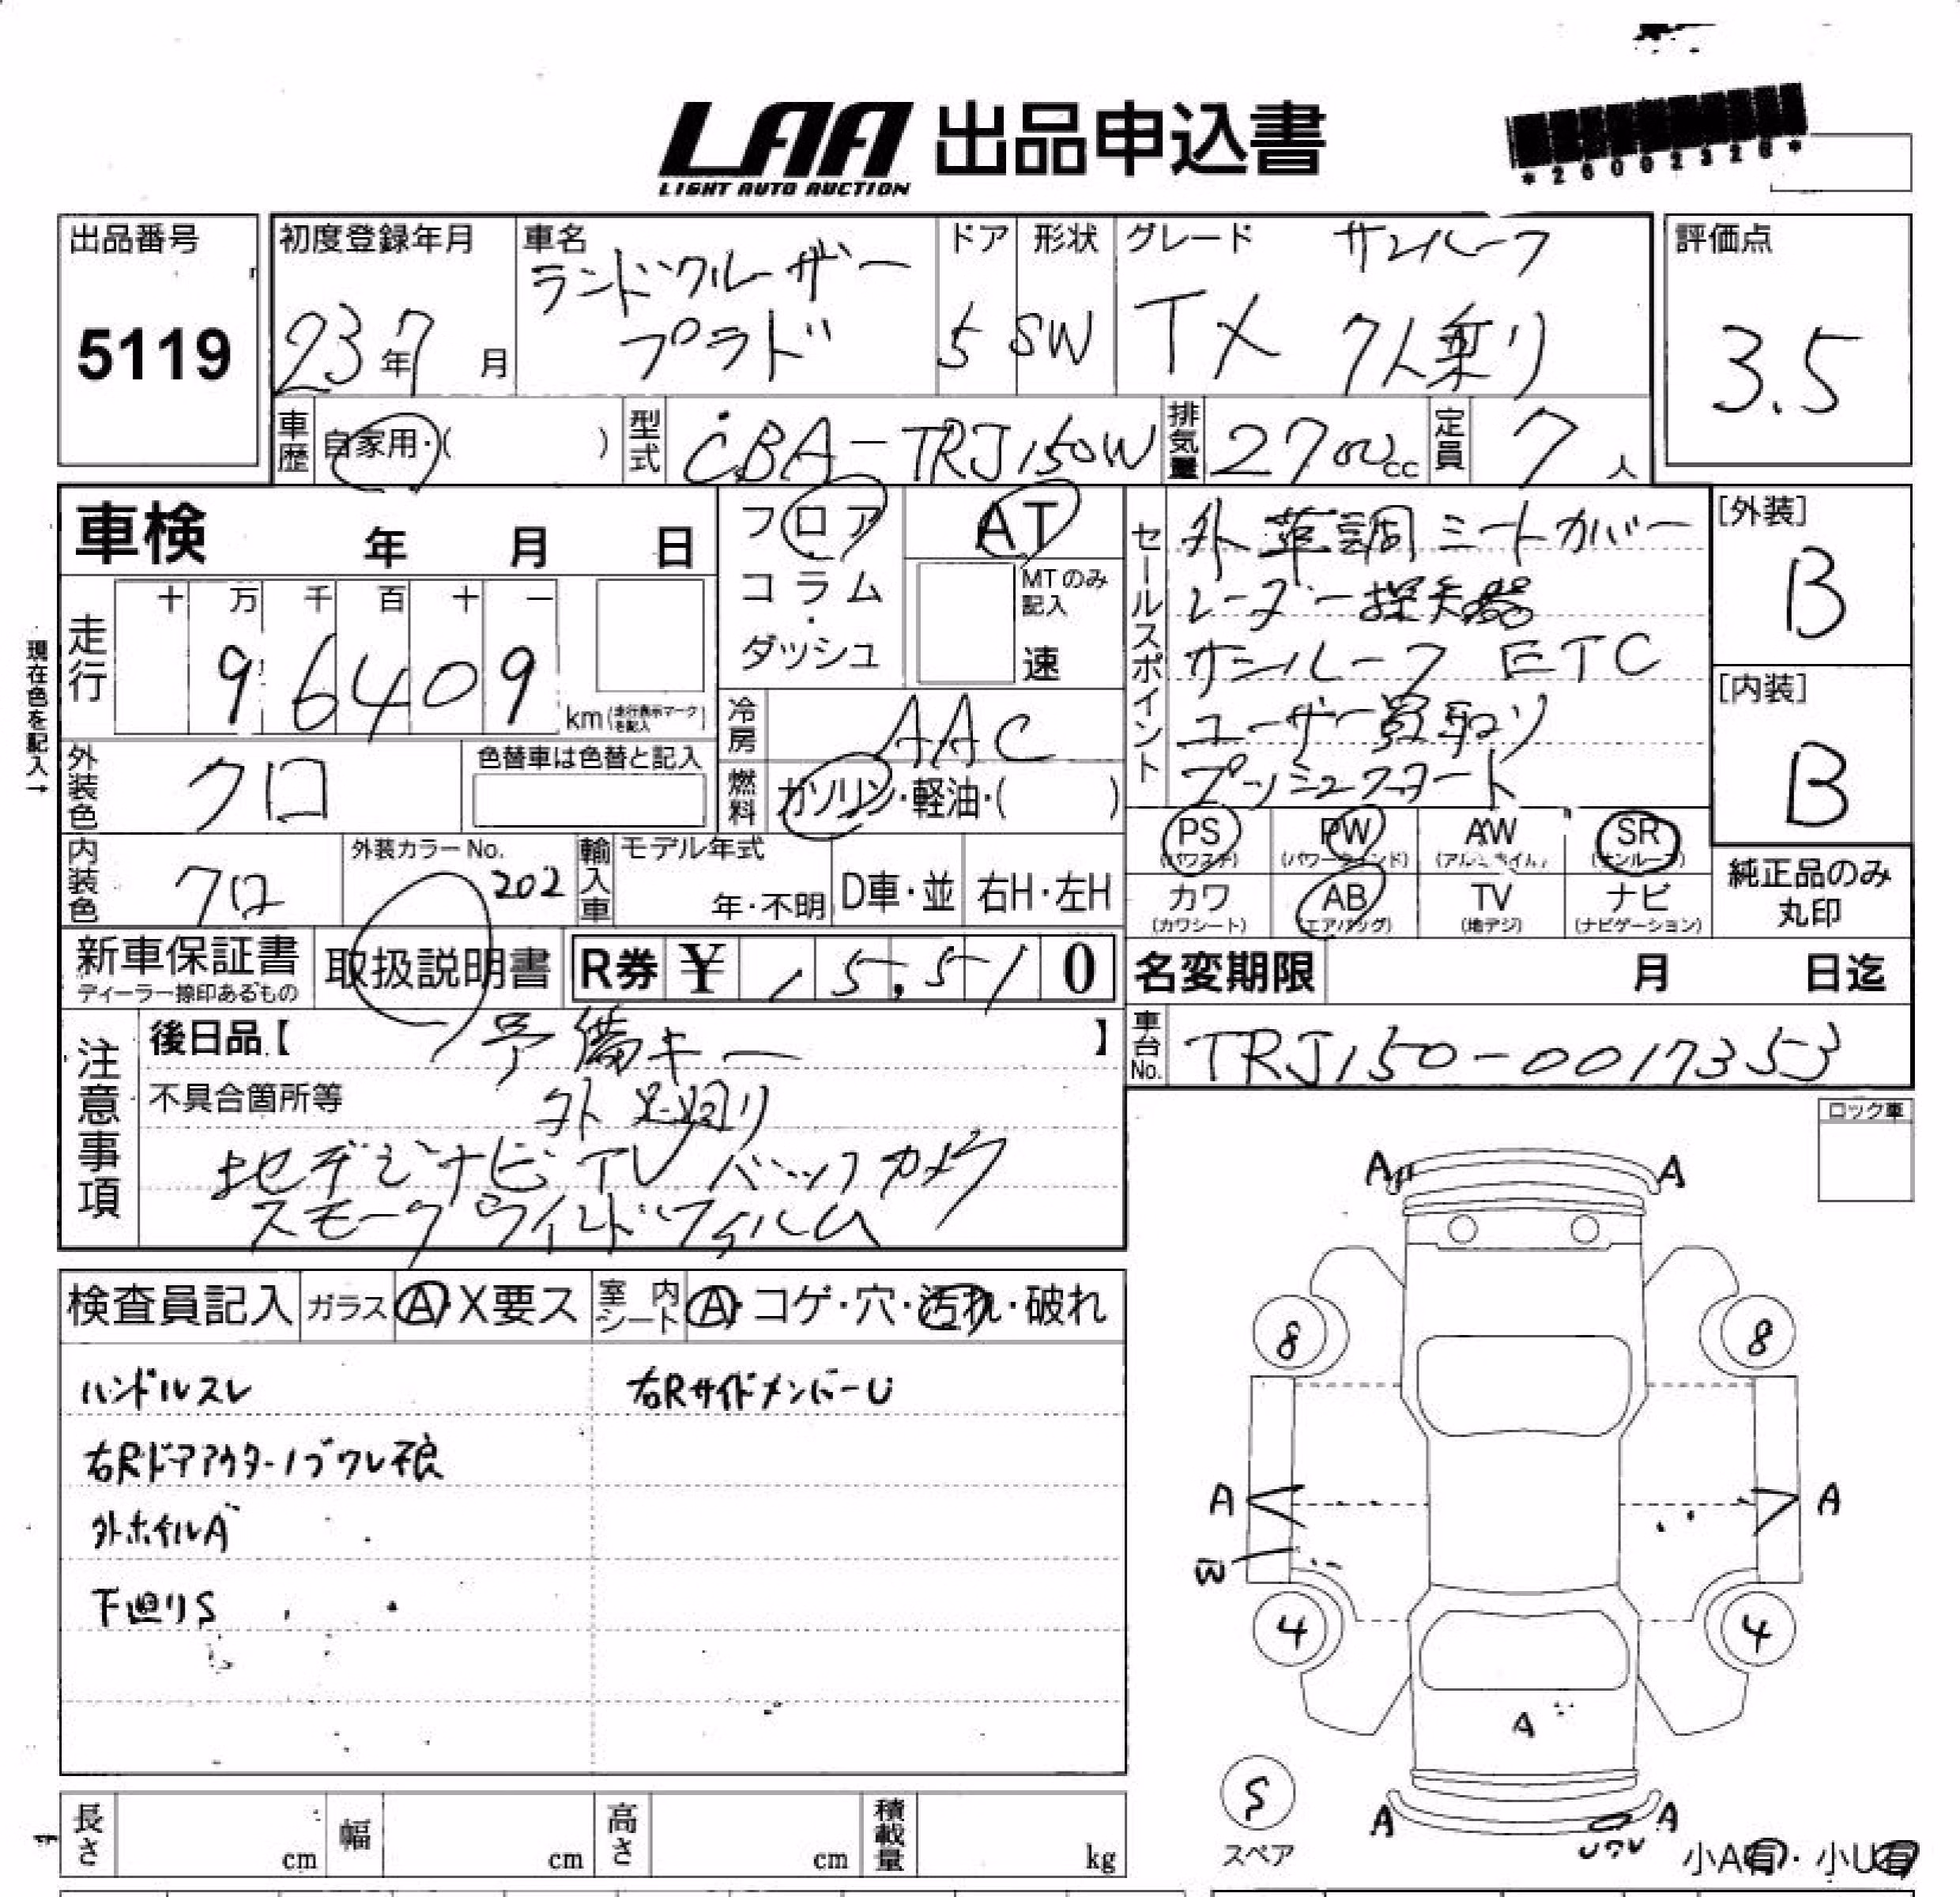 LAA 出品申込書
LIGHT AUTO AUCTION
*26002326*
出品番号
5119
初度登録年月
23年7月
車名
ランドクルーザー
プラド
ドア
5
形状
SW
グレード
サンルーフ
TX 7人乗り
評価点
3.5
車歴
自家用・( )
型式
CBA-TRJ150W
排気量
2700cc
定員
7人
車検 年 月 日
フロア・
コラム・
ダッシュ
AT
MTのみ
記入
速
セールスポイント
外 革調シートカバー
レーダー探知器
サンルーフ ETC
ユーザー買取り
プッシュスタート
[外装]
B
[内装]
B
現在色を記入→
走行
十 万 千 百 十 一
96409
km(走行表示マークを記入)
冷房
AAC
外装色
クロ
色替車は色替と記入
燃料
ガソリン・軽油・( )
PS
(パワステ)
PW
(パワーウインド)
AW
(アルミホイル)
SR
(サンルーフ)
内装色
クロ
外装カラーNo.
202
輸入車
モデル年式
年・不明
D車・並
右H・左H
カワ
(カワシート)
AB
(エアバッグ)
TV
(地デジ)
ナビ
(ナビゲーション)
純正品のみ
丸印
新車保証書
ディーラー捺印あるもの
取扱説明書
R券 ¥ 15,510
名変期限 月 日迄
注意事項
後日品【 予備キー 】
車台No.
TRJ150-0017353
不具合箇所等
外 足廻り
地デジナビTV バックカメラ
スモークワイルドフィルム
ロック車
検査員記入
ガラス
A・X要ス
室内シート
A・コゲ・穴・汚れ・破れ
ハンドルスレ
右RサイドメンバーU
右Rドアアウターノブワレ痕
外ホイルA
下廻りS
A
A
8
8
A
A
B
4
4
A
S
スペア
A
A
小A有・小U有
長さ
cm
幅
cm
高さ
cm
積載量
kg